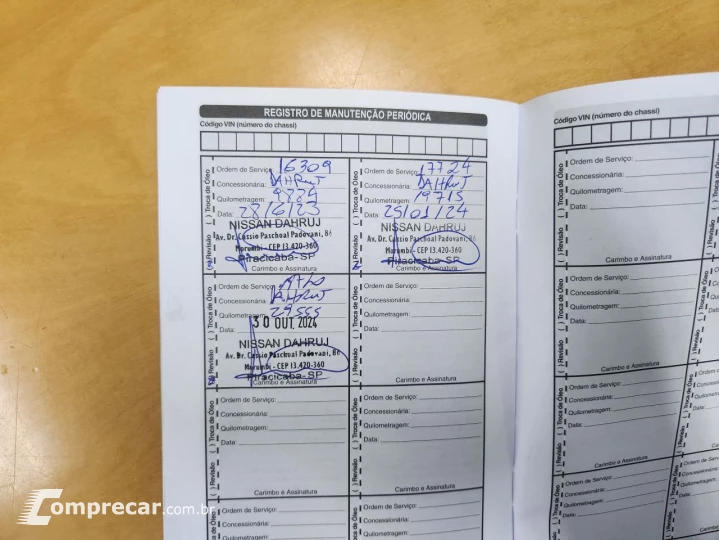 REGISTRO DE MANUTENÇÃO PERIÓDICA
Código VIN (número do chassi)
Código VIN (número do chassi)
( ) Revisão ( ) Troca de Óleo
Ordem de Serviço: 16309
Concessionária: DAHRUJ
Quilometragem: 9884
Data: 28/6/23
NISSAN DAHRUJ
Av. Dr. Cássio Paschoal Padovani, 86
Morumbi - CEP 13.420-360
Piracicaba-SP
Carimbo e Assinatura
( ) Revisão ( ) Troca de Óleo
Ordem de Serviço: 17724
Concessionária: DAHRUJ
Quilometragem: 19715
Data: 25/01/24
NISSAN DAHRUJ
Av. Dr. Cássio Paschoal Padovani,
Morumbi - CEP 13.420-360
Piracicaba-SP
Carimbo e Assinatura
( ) Revisão ( ) Troca de Óleo
Ordem de Serviço:
Concessionária: DAHRUJ
Quilometragem: 29555
Data: 30 OUT. 2024
NISSAN DAHRUJ
Av. Dr. Cássio Paschoal Padovani, 86
Morumbi - CEP 13.420-360
Piracicaba-SP
Carimbo e Assinatura
( ) Revisão ( ) Troca de Óleo
Ordem de Serviço:
Concessionária:
Quilometragem:
Data:
Carimbo e Assinatura
( ) Revisão ( ) Troca de Óleo
Ordem de Serviço:
Concessionária:
Quilometragem:
Data:
Carimbo e Assinatura
( ) Revisão ( ) Troca de Óleo
Ordem de Serviço:
Concessionária:
Quilometragem:
Data:
Carimbo e Assinatura
Ordem de Serviço:
Concessionária:
Quilometragem:
Data:
Ordem de Serviço:
Concessionária:
Quilometragem:
Data:
Ordem de Serviço:
Concessionária:
Quilometragem:
Data:
Carimbo e Assinatura
Ordem de Serviço:
Concessionária:
Quilometragem:
Data:
Carimbo e Assinatura
Ordem de Serviço:
Concessionária:
Quilometragem:
Data:
Carimbo e Assinatura
Ordem de Serviço:
Concessionária:
Quilometragem:
Data:
Comprecar.com.br